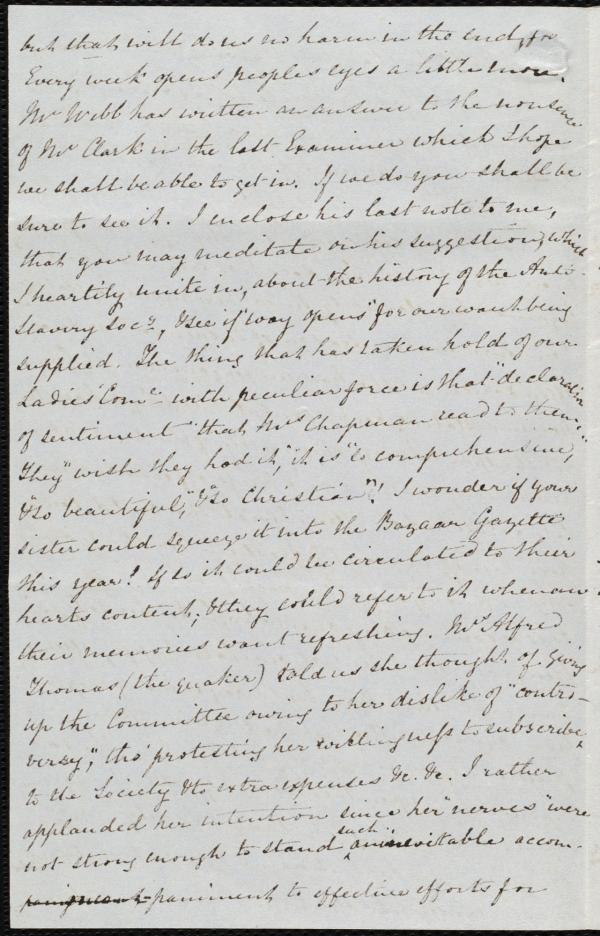 but that will do us no harm in the end, for
Every week opens peoples eyes a little more.
Mr Webb has written an answer to the nonsense
of Mr Clark in the last Examiner which I hope
we shall be able to get in. If we do you shall be
sure to see it. I enclose his last note to me,
that you may meditate on his suggestion, which
I heartily unite in, about the history of the Anti-
Slavery Socy, & see if "way opens" for our want being
supplied. The thing that has taken hold of our
Ladies' Come with peculiar force is that "declaration
of sentiment" that Mrs Chapman read to them.
They "wish they had it," "it is" "so comprehensive,"
"& so beautiful," "& so Christian"! I wonder if your
sister could squeeze it into the Bazaar Gazette
this year? If so it could be circulated to their
hearts content, & they could refer to it whenever
their memories want refreshing. Mrs Alfred
Thomas (the quaker) told us she thought of giving
up the Committee owing to her dislike of "contro-
versy," tho' protesting her willingness to subscribe
to the Society & to extra expenses &c. &c. I rather
applauded her intention since her "nerves" were
not strong enough to stand such an inevitable accom-
paniment to effective efforts for